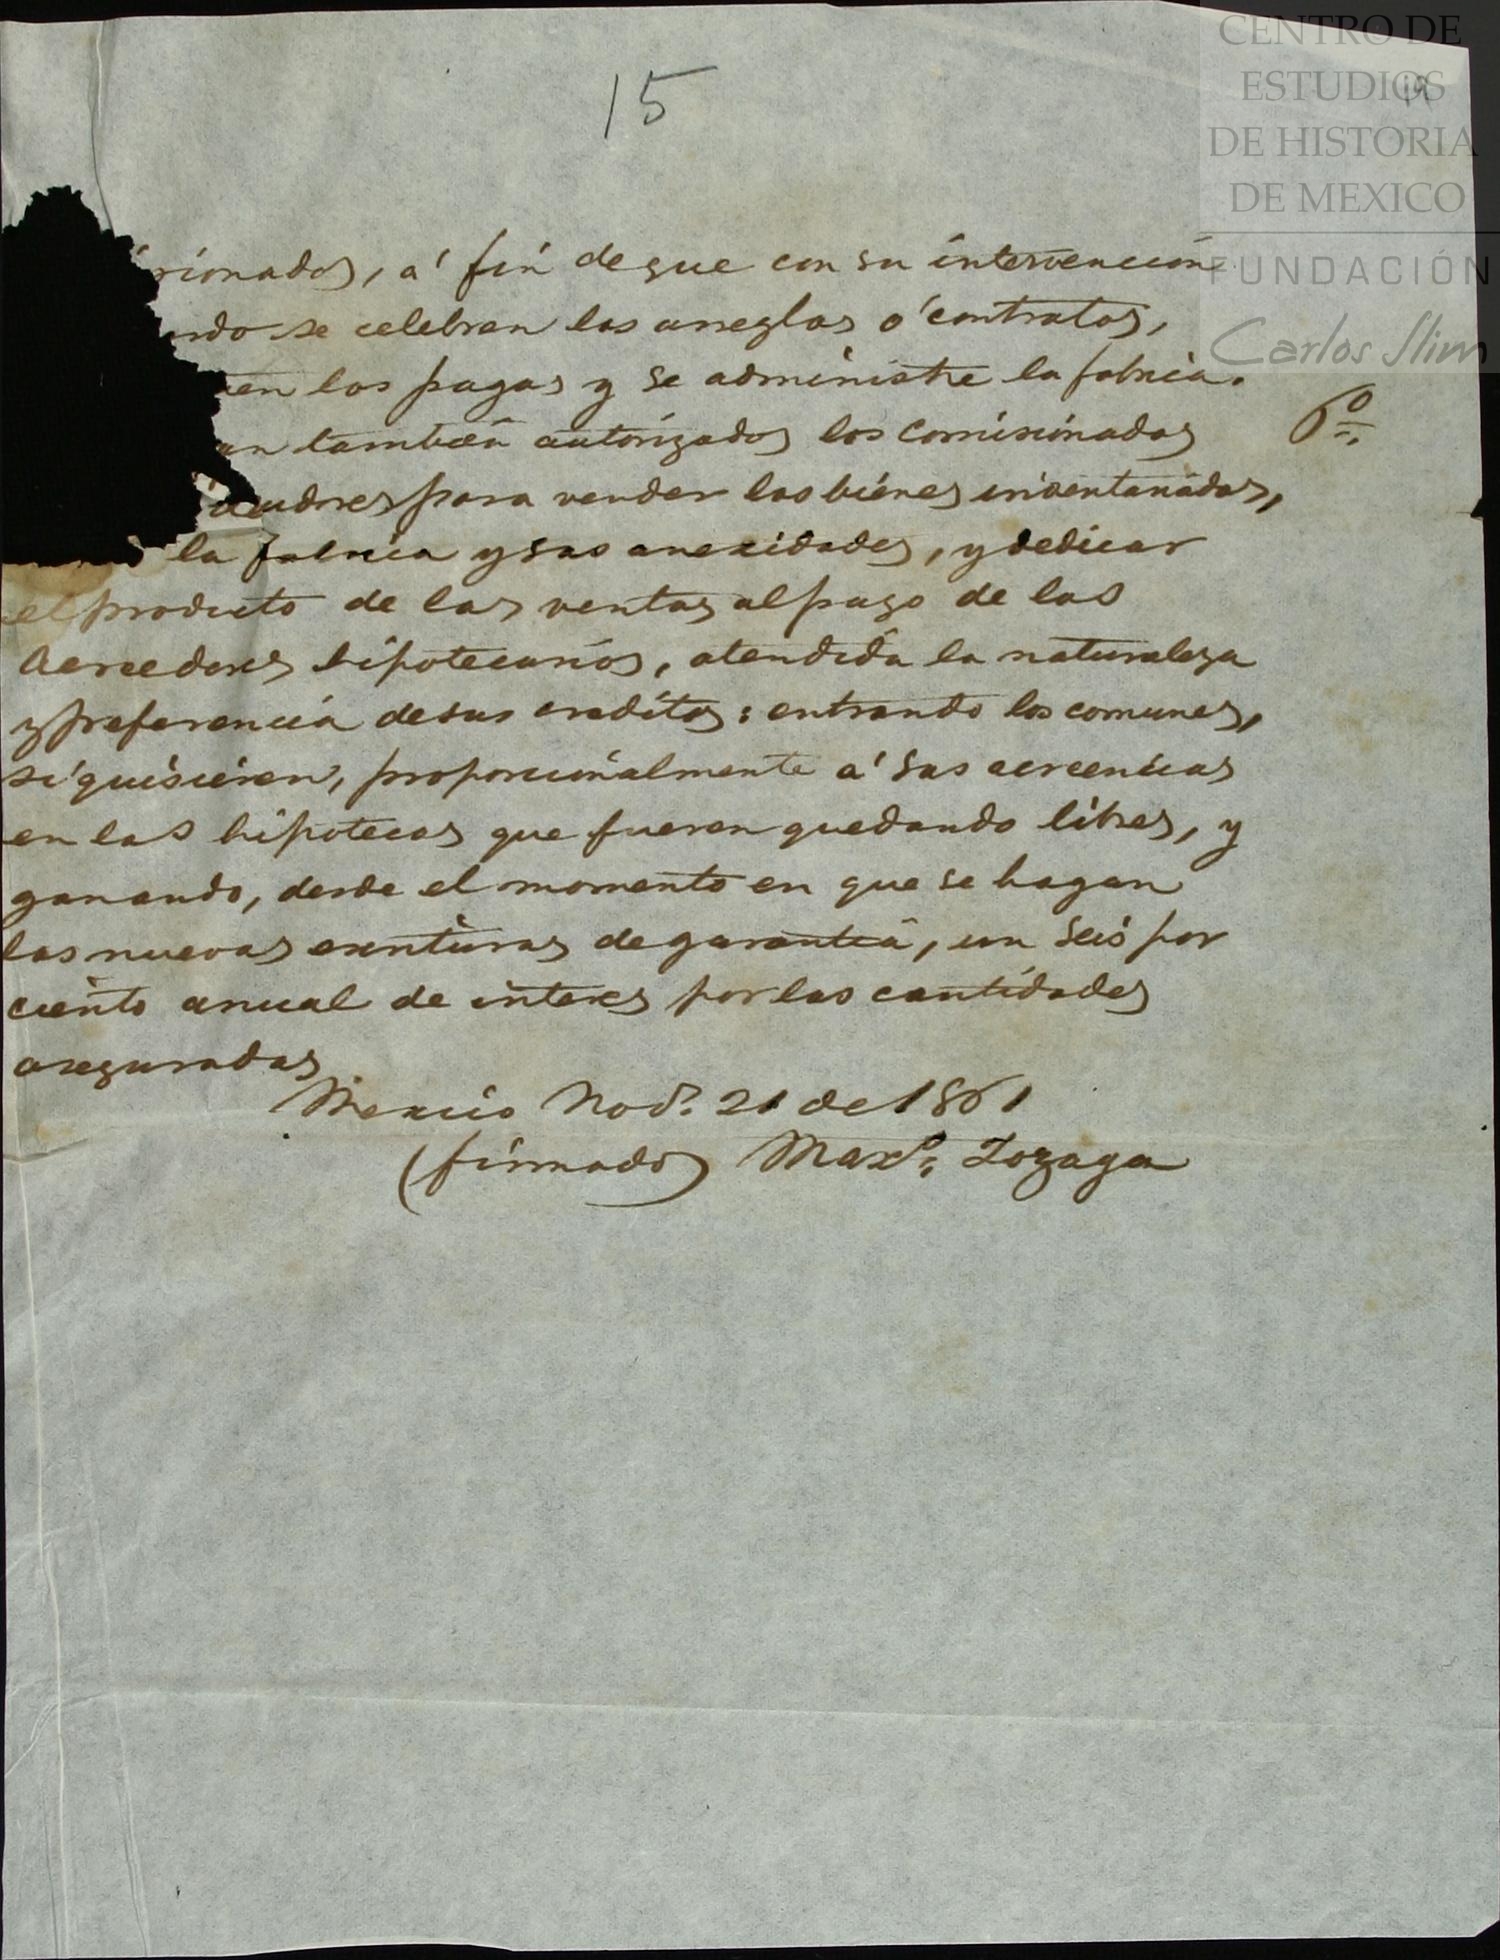 15
19
CENTRO DE
ESTUDIOS
DE HISTORIA
DE MEXICO
FUNDACIÓN
Carlos Slim
isionados, a' fin de que con su intervencion
ndo se celebren los arreglos o' contratos,
uen los pagos y se administre la fabrica.
6º
an tambien autorizados los comisionados
eedores para vender los bienes inventariados,
la fabrica y sus anexidades, y dedicar
el producto de las ventas al pago de los
Acreedores hipotecarios, atendida la naturaleza
y preferencia de sus creditos: entrando los comunes,
si quisieren, proporcionalmente a' sus acreencias
en las hipotecas que fueren quedando libres, y
ganando, desde el momento en que se hagan
las nuevas escrituras de garantia, un seis por
ciento anual de interes por las cantidades
aseguradas
Mexico Nov.e 21 de 1861
(firmado) Max.o Zozaya